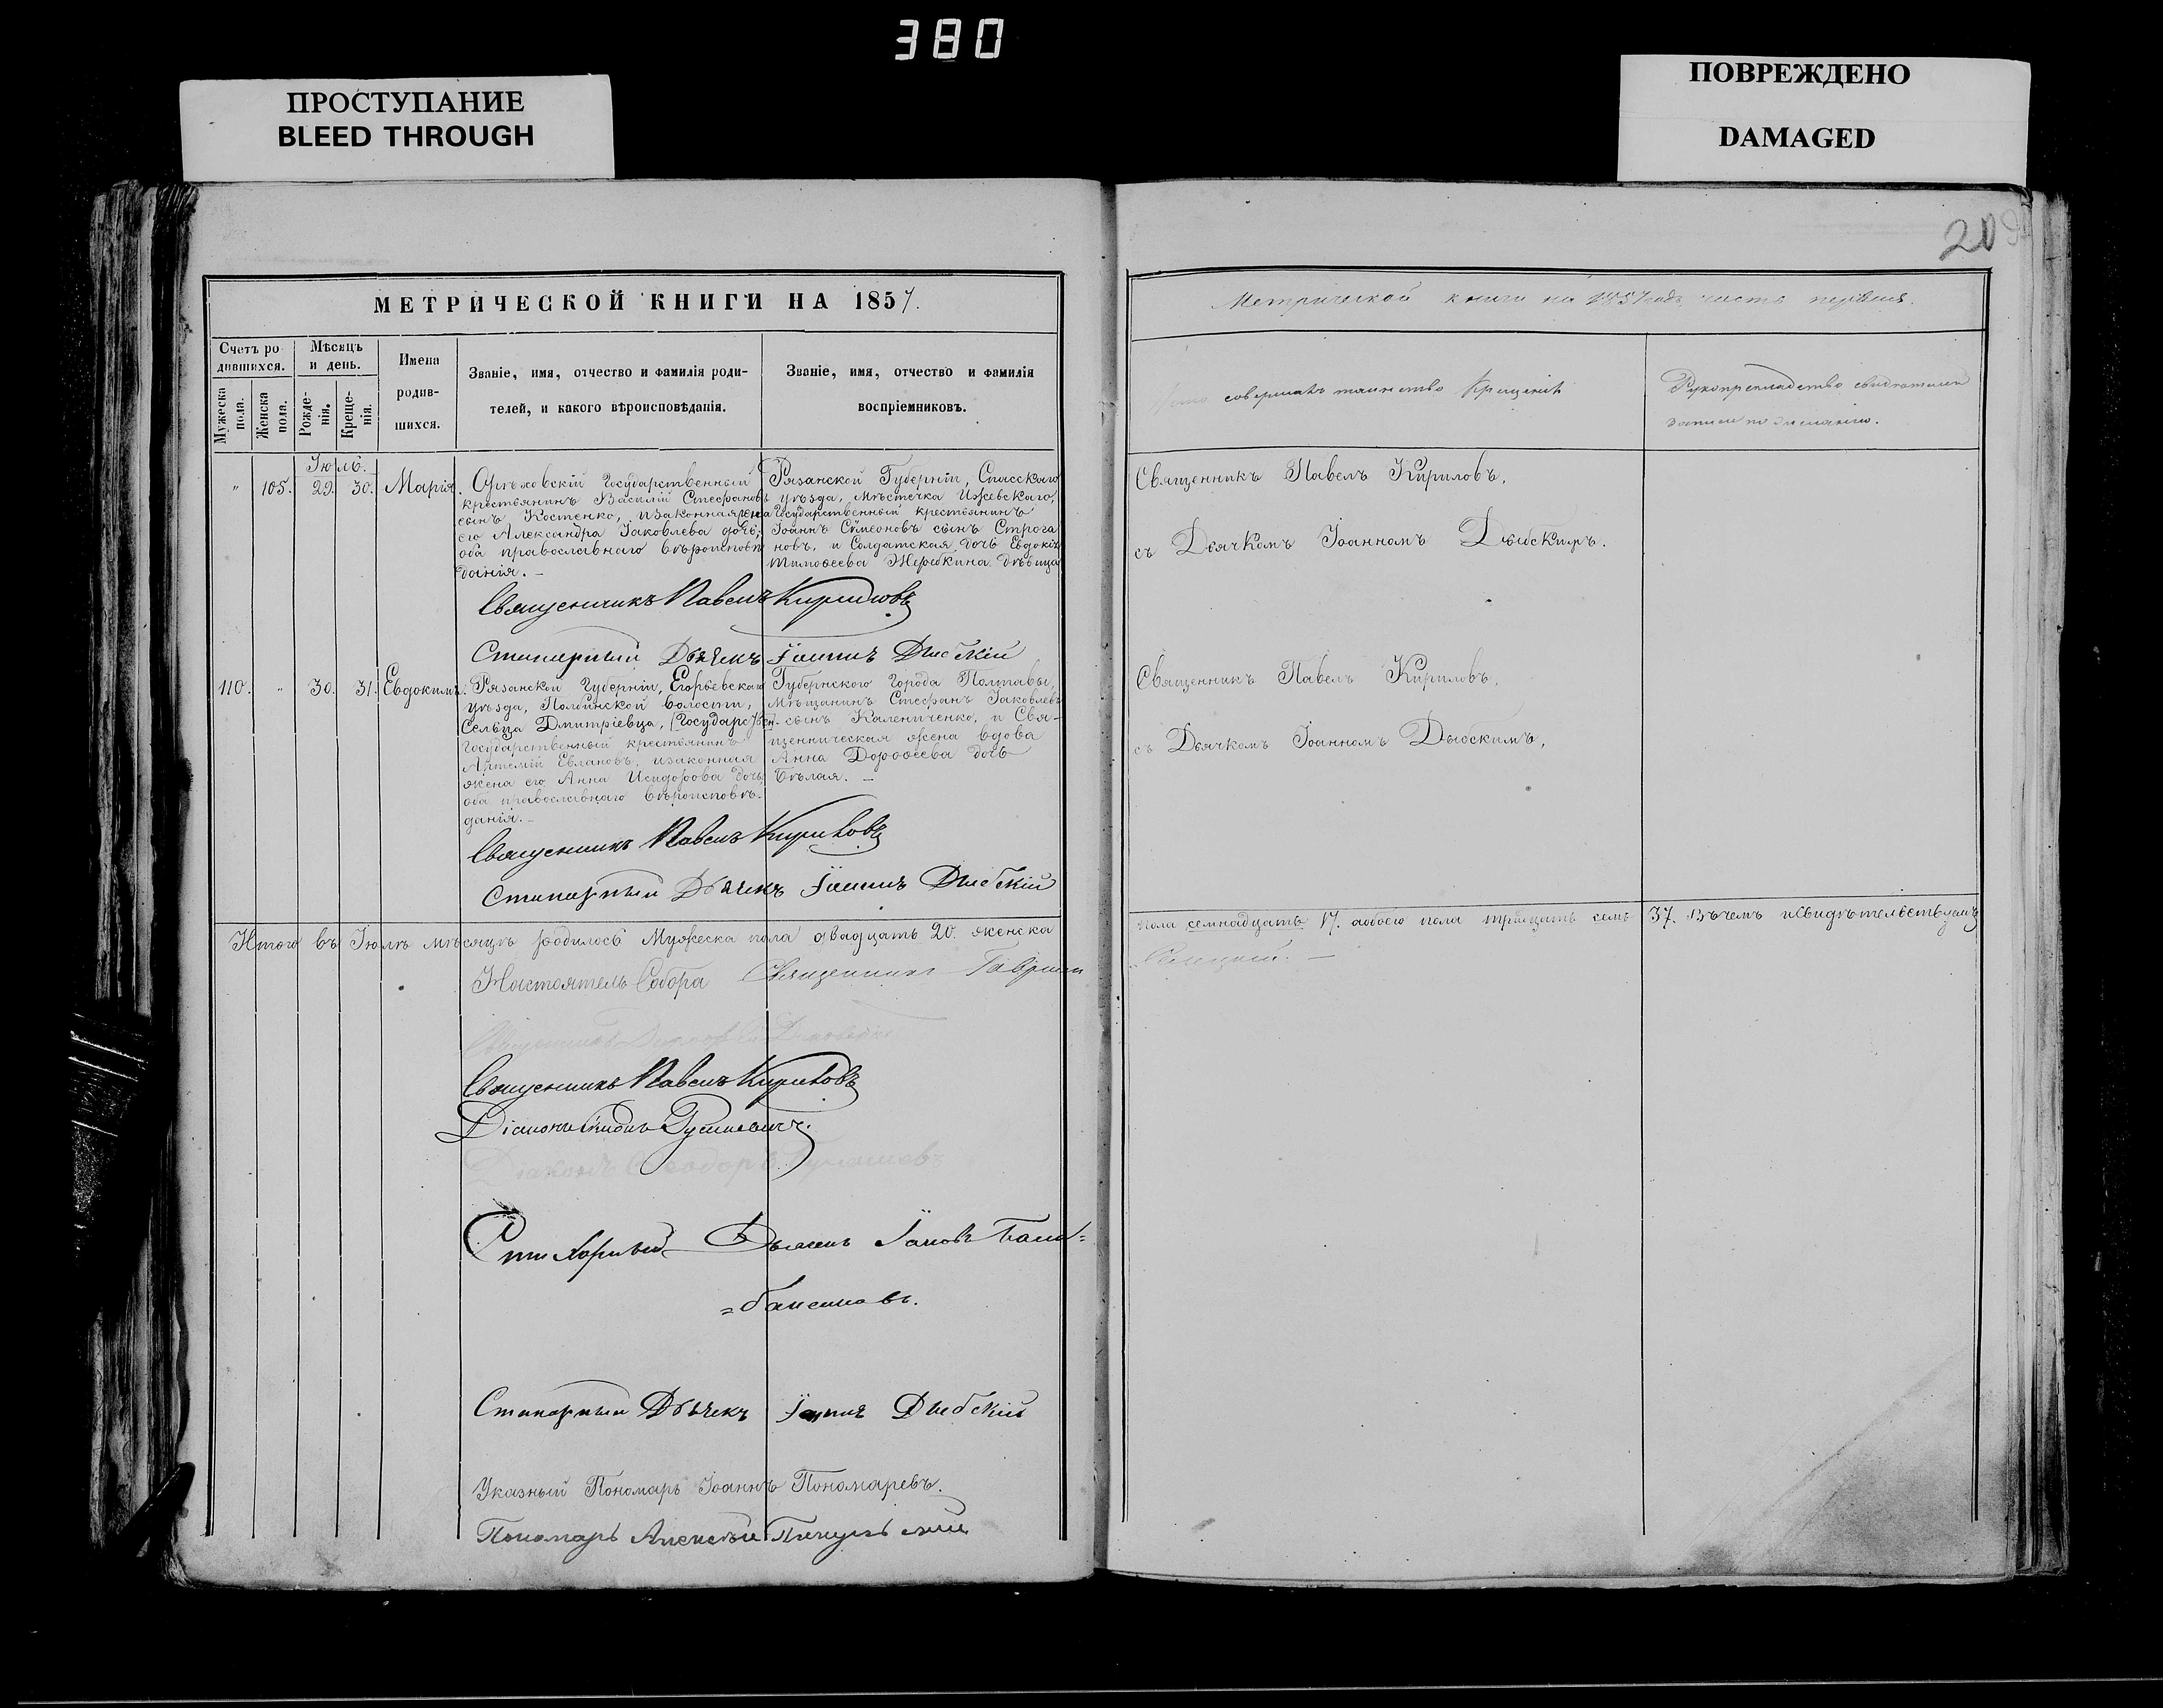 380
ПРОСТУПАНИЕ
BLEED THROUGH
ПОВРЕЖДЕНО
DAMAGED
20
МЕТРИЧЕСКОЙ КНИГИ НА 1857.
Счетъ ро
дившихся.
Мужеска пола.
Женска пола.
Мѣсяцъ
и день.
Рожде-
нія.
Креще-
нія.
Имена
родив-
шихся.
Званіе, имя, отчество и фамилія роди-
телей, и какого вѣроисповѣданія.
Званіе, имя, отчество и фамилія
воспріемниковъ.
Июль.
" 105. 29. 30. Марія.
Орѣховскій Государственный
крестьянинъ Василій Стефановъ
сынъ Костенко, и законная жена
его Александра Іаковлева дочь;
оба православнаго вѣроисповѣ
данія. —
Рязанской Губерніи, Спасскаго
уѣзда, мѣстечка Ижевскаго,
Государственный крестьянинъ
Іоаннъ Сѵмеоновъ сынъ Строга
новъ, и Солдатская дочь Евдокія
Тимофеева Жеребкина дѣвица
Священникъ Павелъ Кириловъ
Стихарный Дьячекъ Іоаннъ
110. " 30. 31. Евдокимъ.
Рязанской Губерніи, Егорьевскаго
уѣзда, волости,
Сельца Дмитріевца, (Государствен-
Государственный крестьянинъ
Артемій Евлановъ, и законная
жена его Анна Исидорова дочь;
оба православнаго вѣроисповѣ-
данія. —
Губернского Города Полтавы,
мѣщанинъ Стефанъ Іаковлевъ
сынъ Калениченко, и Свя-
щенническая жена вдова
Анна Дорофеева дочь
Бѣлая. —
Священникъ Павелъ Кириловъ
Стихарный Дьячекъ Іоаннъ
Итого въ Іюлѣ мѣсяцѣ родилось Мужеска пола двадцать 20. женска
Настоятель Собора Священникъ Гавріилъ
Священникъ
Священникъ Павелъ Кириловъ
Діаконъ
Діаконъ Ѳеодоръ
Стихарный Дьячекъ Іаковъ
Стихарный Дьячекъ Іоаннъ
Указный Пономарь Іоаннъ Пономаревъ.
Пономарь Алексѣй
Метрической книги на 1857 годъ часть первая.
совершалъ таинство крещенія
Рукоприкладство свидѣтелей
записи по желанію.
Священникъ Павелъ Кириловъ,
съ Дьячкомъ Іоанномъ
Священникъ Павелъ Кириловъ,
съ Дьячкомъ Іоанномъ
пола семнадцать 17. а обоего пола тридцать семь 37. Въ чемъ и свидѣтельствуемъ